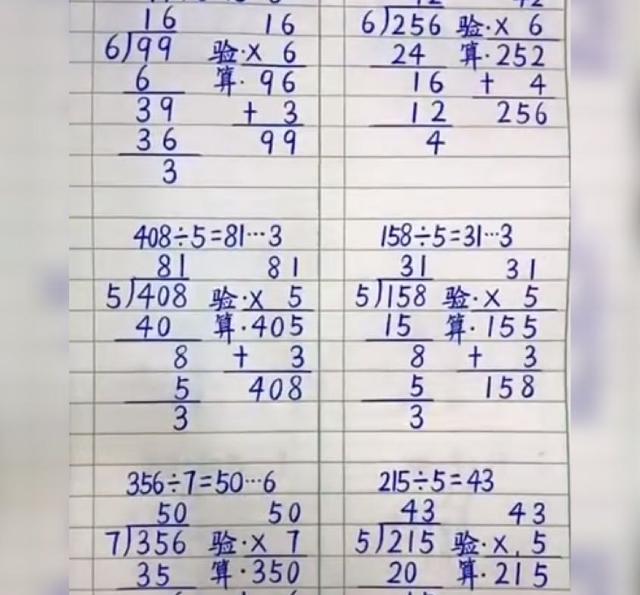 16 16
6)99 验·× 6
6 算·96
39 + 3
36 99
3
6)256 验·× 6
24 算·252
16 + 4
12 256
4
408÷5=81…3
81 81
5)408 验·× 5
40 算·405
8 + 3
5 408
3
158÷5=31…3
31 31
5)158 验·× 5
15 算·155
8 + 3
5 158
3
356÷7=50…6
50 50
7)356 验·× 7
35 算·350
215÷5=43
43 43
5)215 验·×.5
20 算·215